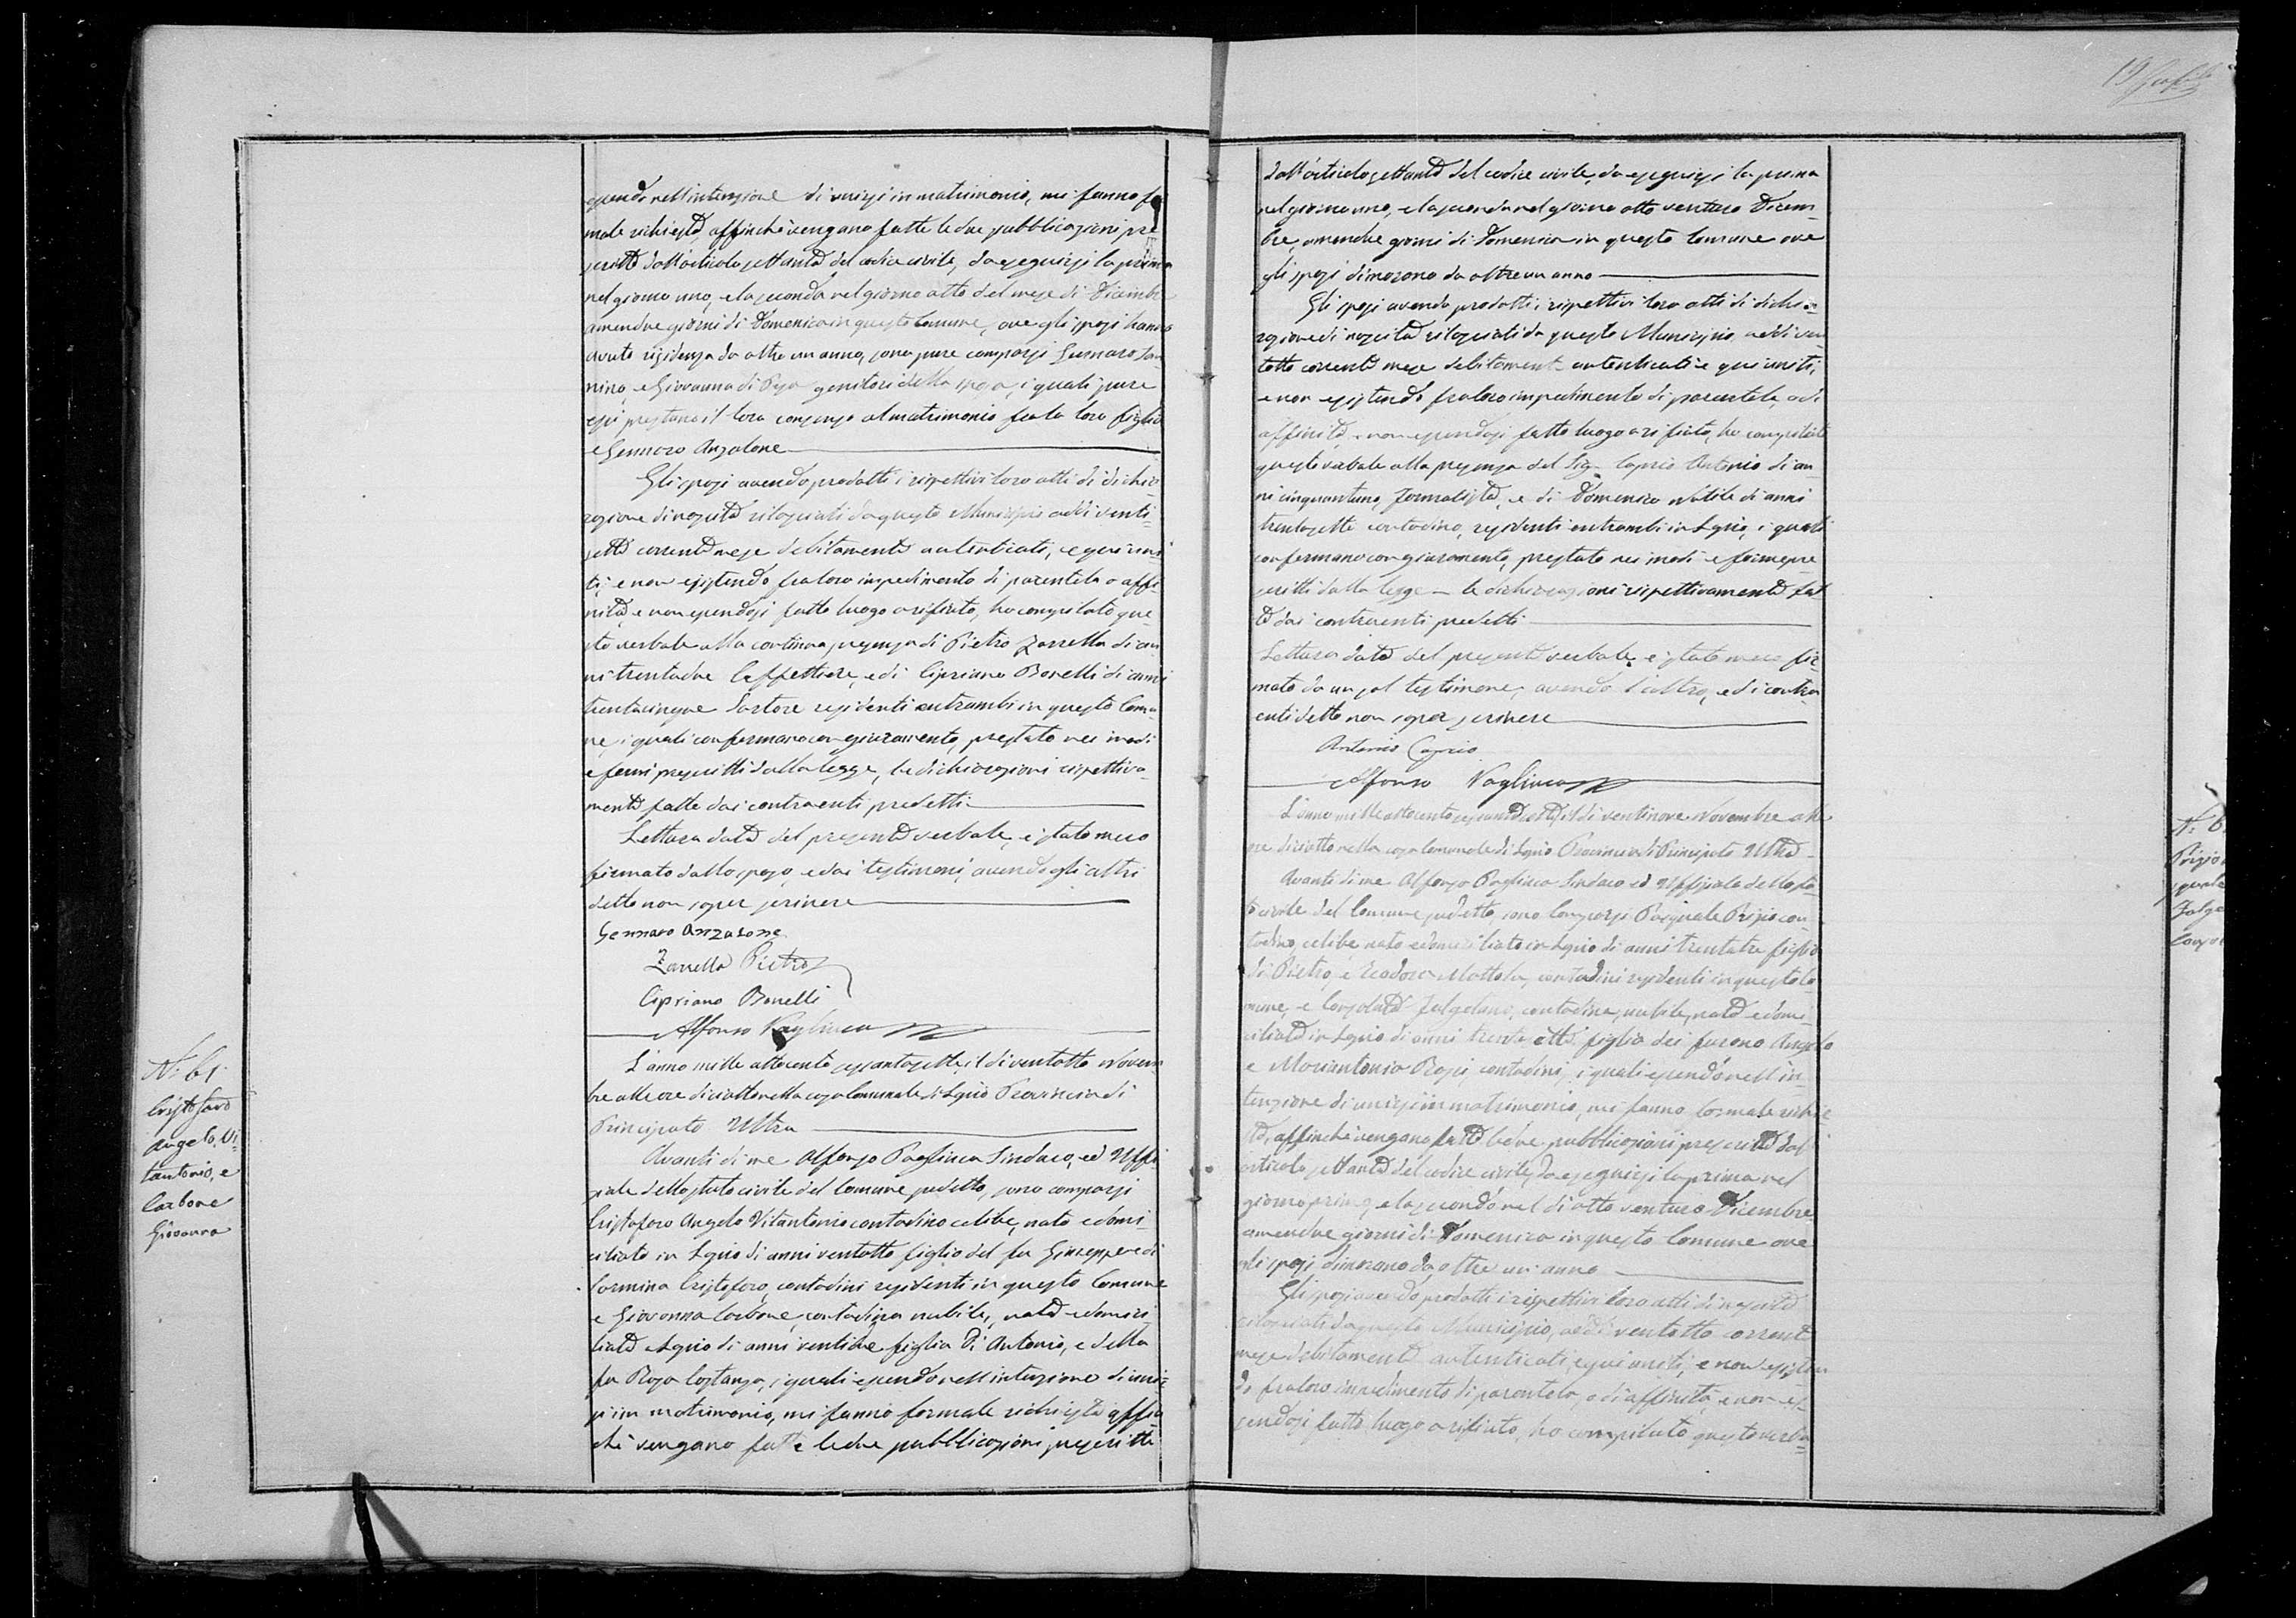 essendo nell'intenzione di unirsi in matrimonio, mi fanno for
male richiesta, affinchè vengano fatte le due pubblicazioni pre
scritte dall'articolo settanta del codice civile, da eseguirsi la prima
nel giorno uno, e la seconda nel giorno otto del mese di Dicembre
amendue giorni di Domenica in questo Comune, ove gli sposi hanno
avuto residenza da oltre un anno, sono pure comparsi Gennaro
nino, e Giovanna di Pesa genitori della sposa, i quali pure
essi prestano il loro consenso al matrimonio fra la loro figlia
e Gennaro Anzalone
Gli sposi avendo prodotti i rispettivi loro atti di dichia-
razione di nascita rilasciati da questo Municipio addì venti-
sette corrente mese debitamente autenticati, e qui uni-
ti, e non esistendo fra loro impedimento di parentela o affi-
nità, e non essendosi fatto luogo a rifiuto, ho compilato que-
sto verbale alla continua presenza di Pietro Zarrella di an-
ni trentadue Caffettiere, e di Cipriano Bonelli di anni
trentacinque Sartore residenti entrambi in questo Comu-
ne, i quali confermano con giuramento, prestato nei modi
e forme prescritti dalla legge, le dichiarazioni rispettiva-
mente fatte dai contraenti predetti
Lettura data del presente verbale, è stato meco
firmato dallo sposo, e dai testimoni, avendo gli altri
detto non saper scrivere
Gennaro Anzalone
Zarrella Pietro
Cipriano Bonelli
Alfonso Pagliuca
N.° 61.
Cristofaro
Angelo Vi-
tantonio, e
Carbone
Giovanna
L'anno mille ottocento sessantasette, il dì ventotto Novem
bre alle ore diciotto nella casa Comunale di Provincia di
Principato Ultra
Avanti di me Alfonso Pagliuca Sindaco, ed Uffi
ziale dello stato civile del Comune sudetto, sono comparsi
Cristoforo Angelo Vitantonio contadino celibe, nato e domi-
ciliato in di anni ventotto figlio del fu Giuseppe e di
Carmina Cristoforo, contadini residenti in questo Comune
e Giovanna Carbone, contadina nubile, nata e domici-
liata di anni ventidue figlia di Antonio, e della
fu Rosa Costanza, i quali essendo nell'intenzione di unir-
si in matrimonio, mi fanno formale richiesta affin
chè vengano fatte le due pubblicazioni prescritte
19
dall'articolo settanta del codice civile, da eseguirsi la prima
nel giorno uno, e la seconda nel giorno otto venturo Dicem-
bre, amendue giorni di Domenica in questo Comune ove
gli sposi dimorano da oltre un anno
Gli sposi avendo prodotti i rispettivi loro atti di dichia-
razione di nascita rilasciati da questo Municipio, addì ven-
totto corrente mese debitamente autenticati e qui uniti,
e non esistendo fra loro impedimento di parentela, o di
affinità, e non essendosi fatto luogo a rifiuto, ho compilato
questo verbale alla presenza del Sig. Caprio Antonio di an-
ni cinquantuno, e di Domenico Natile di anni
trentasette contadino, residenti entrambi in i quali
confermano con giuramento, prestato nei modi e forme pre
scritti dalla legge le dichiarazioni rispettivamente fat
te dai contraenti predetti
Lettura data del presente verbale, è stato meco fir-
mato da un sol testimone, avendo l'altro, ed i contra
enti detto non saper scrivere
Antonio Caprio
Alfonso Pagliuca
L'anno mille ottocento sessantasette, il dì ventinove Novembre alle
ore diciotto nella casa Comunale di Provincia di Principato Ultra
Avanti di me Alfonso Pagliuca Sindaco ed Uffiziale dello sta-
to civile del Comune sudetto, sono comparsi Pasquale Prizio con-
tadino, celibe nato e domiciliato in di anni trentatre figlio
di Pietro, e Teodora Mattola, contadini residenti in questo Co-
mune, e Consolata contadina, nubile, nata e domi-
ciliata in di anni trentotto figlia dei furono Angelo
e Mariantonia contadini, i quali essendo nell'in-
tenzione di unirsi in matrimonio, mi fanno formale richie
sta, affinchè vengano fatte le due pubblicazioni prescritte dal
articolo settanta del codice civile, da eseguirsi la prima nel
giorno primo, e la seconda nel dì otto venturo Dicembre
amendue giorni di Domenica in questo Comune ove
gli sposi dimorano da oltre un anno
Gli sposi avendo prodotti i rispettivi loro atti di nascita
rilasciati da questo Municipio, addì ventotto corrente
mese debitamente autenticati, e qui uniti, e non esisten
do fra loro impedimento di parentela, o di affinità, e non es-
sendosi fatto luogo a rifiuto, ho compilato questo verba-
N.° 6
Prizio